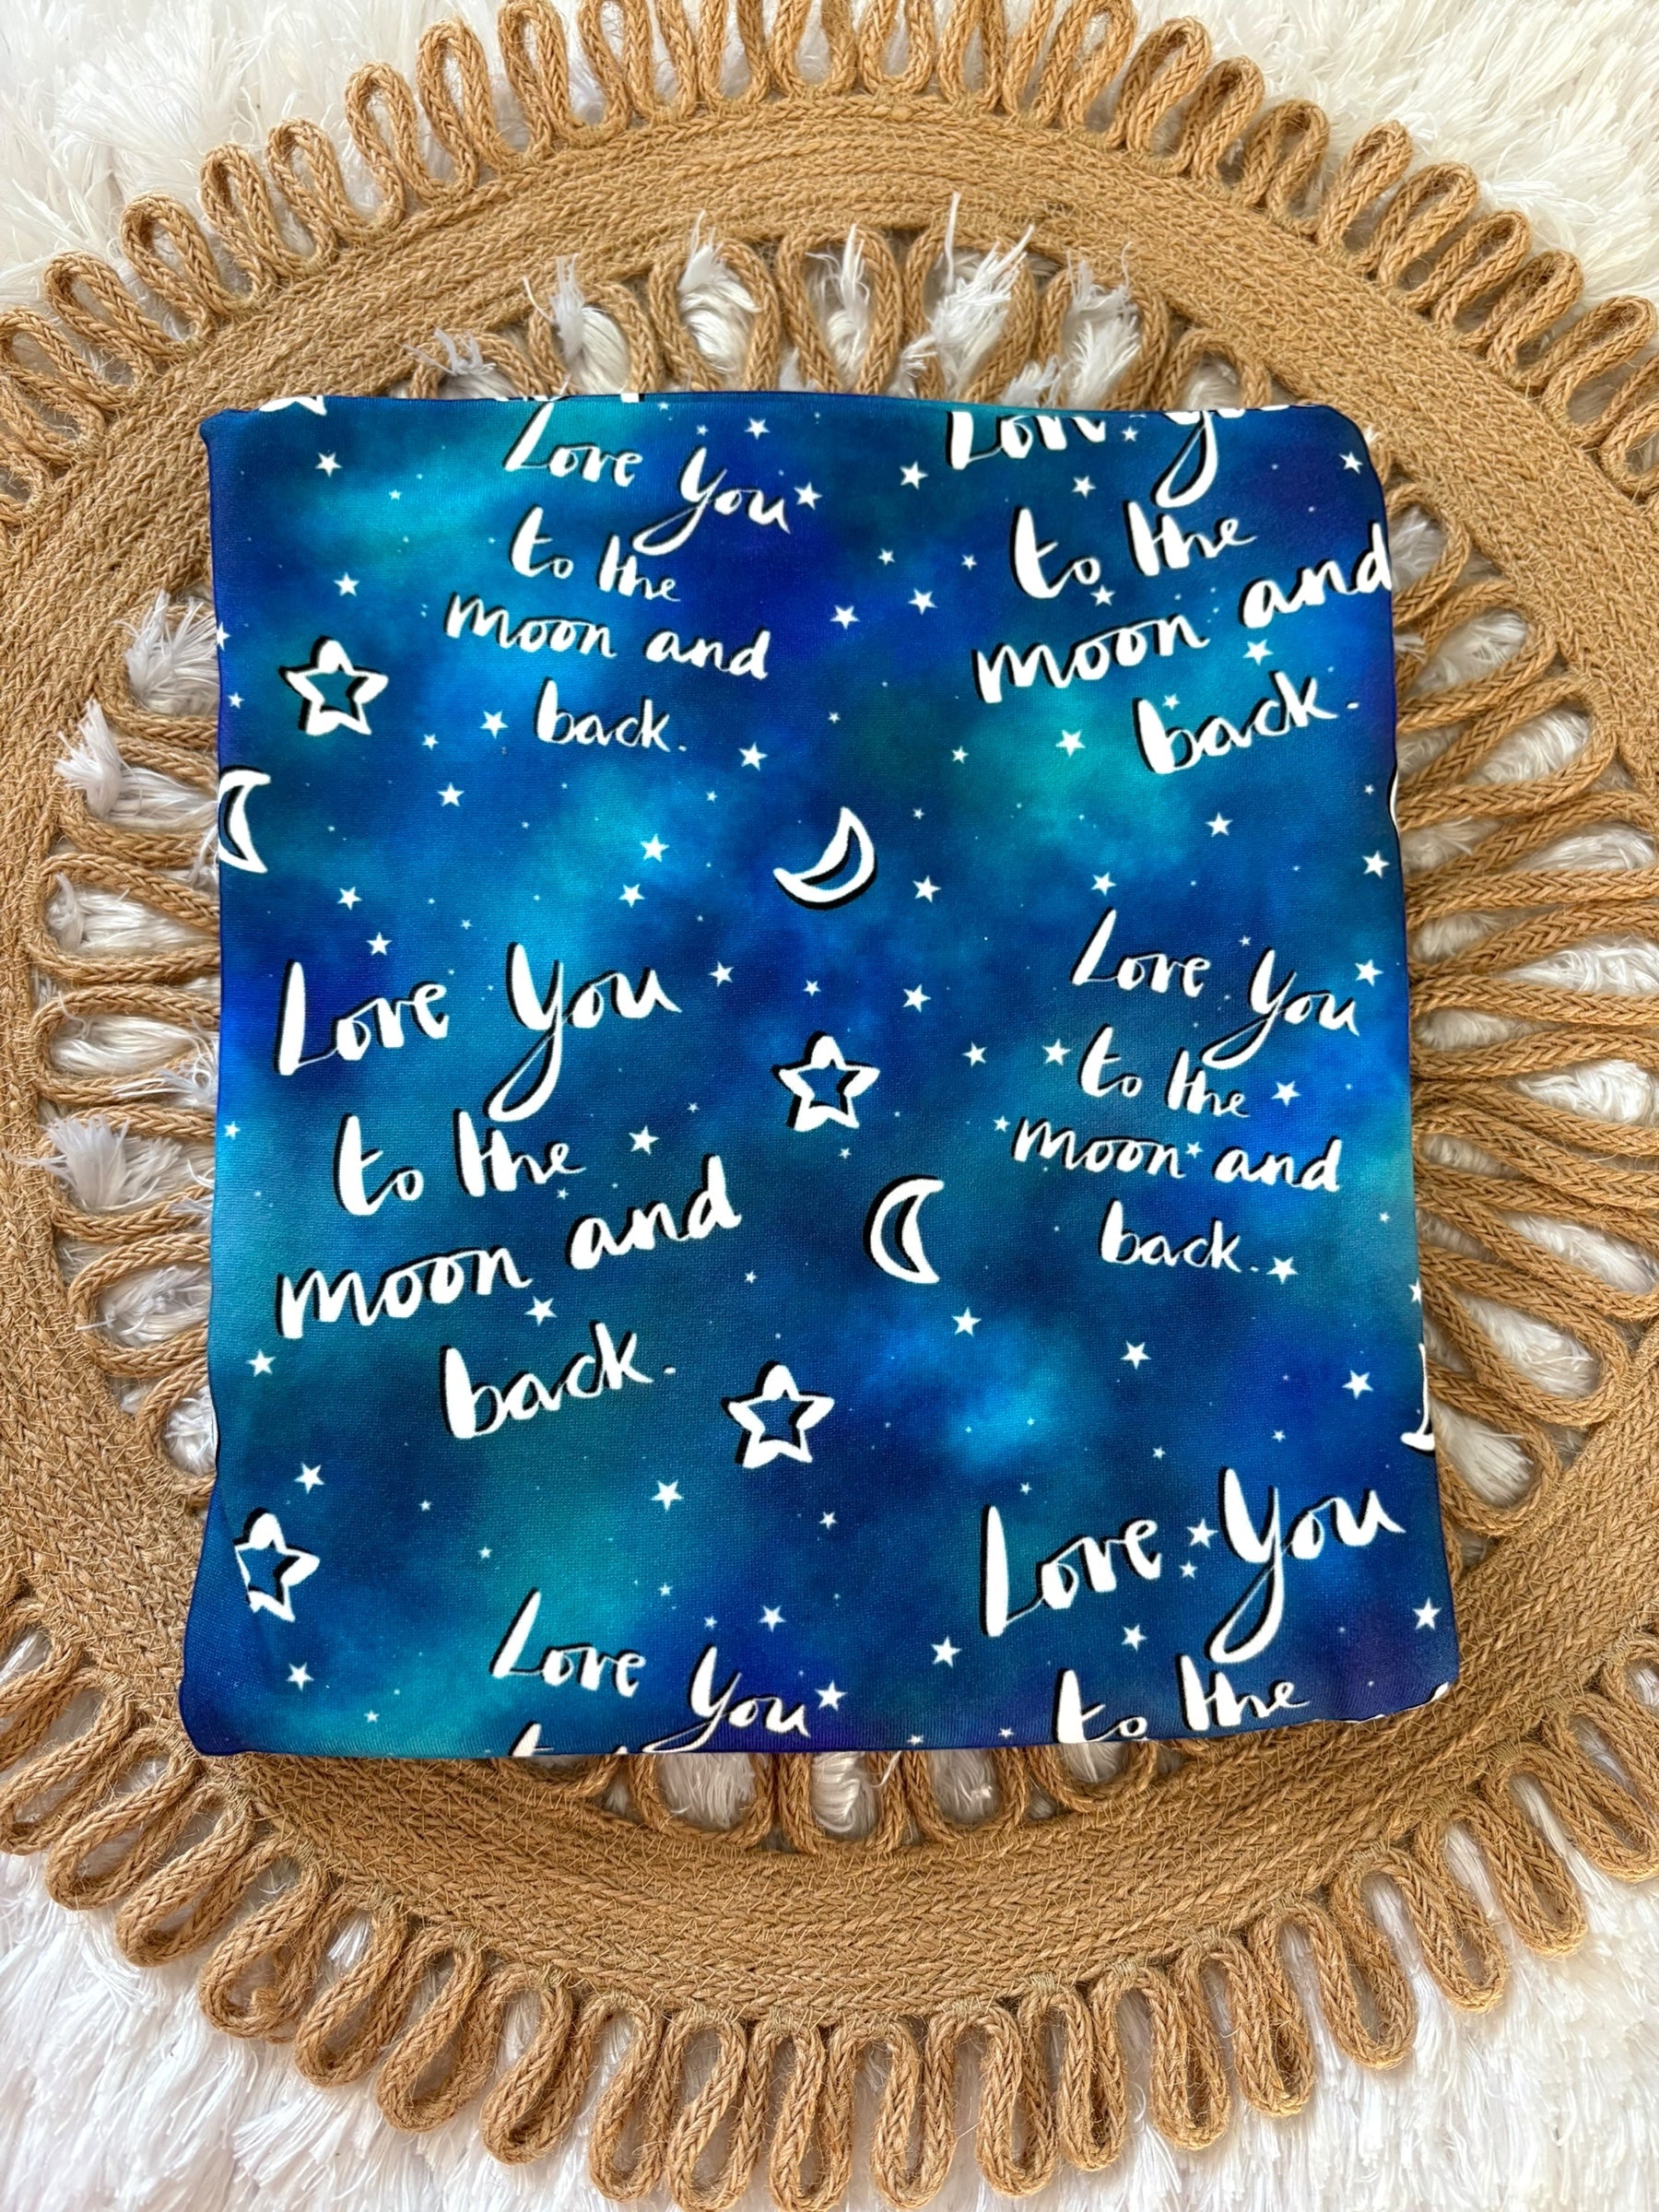 Love You
to the
moon and
back.
Love you
to the
moon and
back.
Love You
to the
moon and
back.
Love You
to the
moon and
back.
Love You
Love You
to the